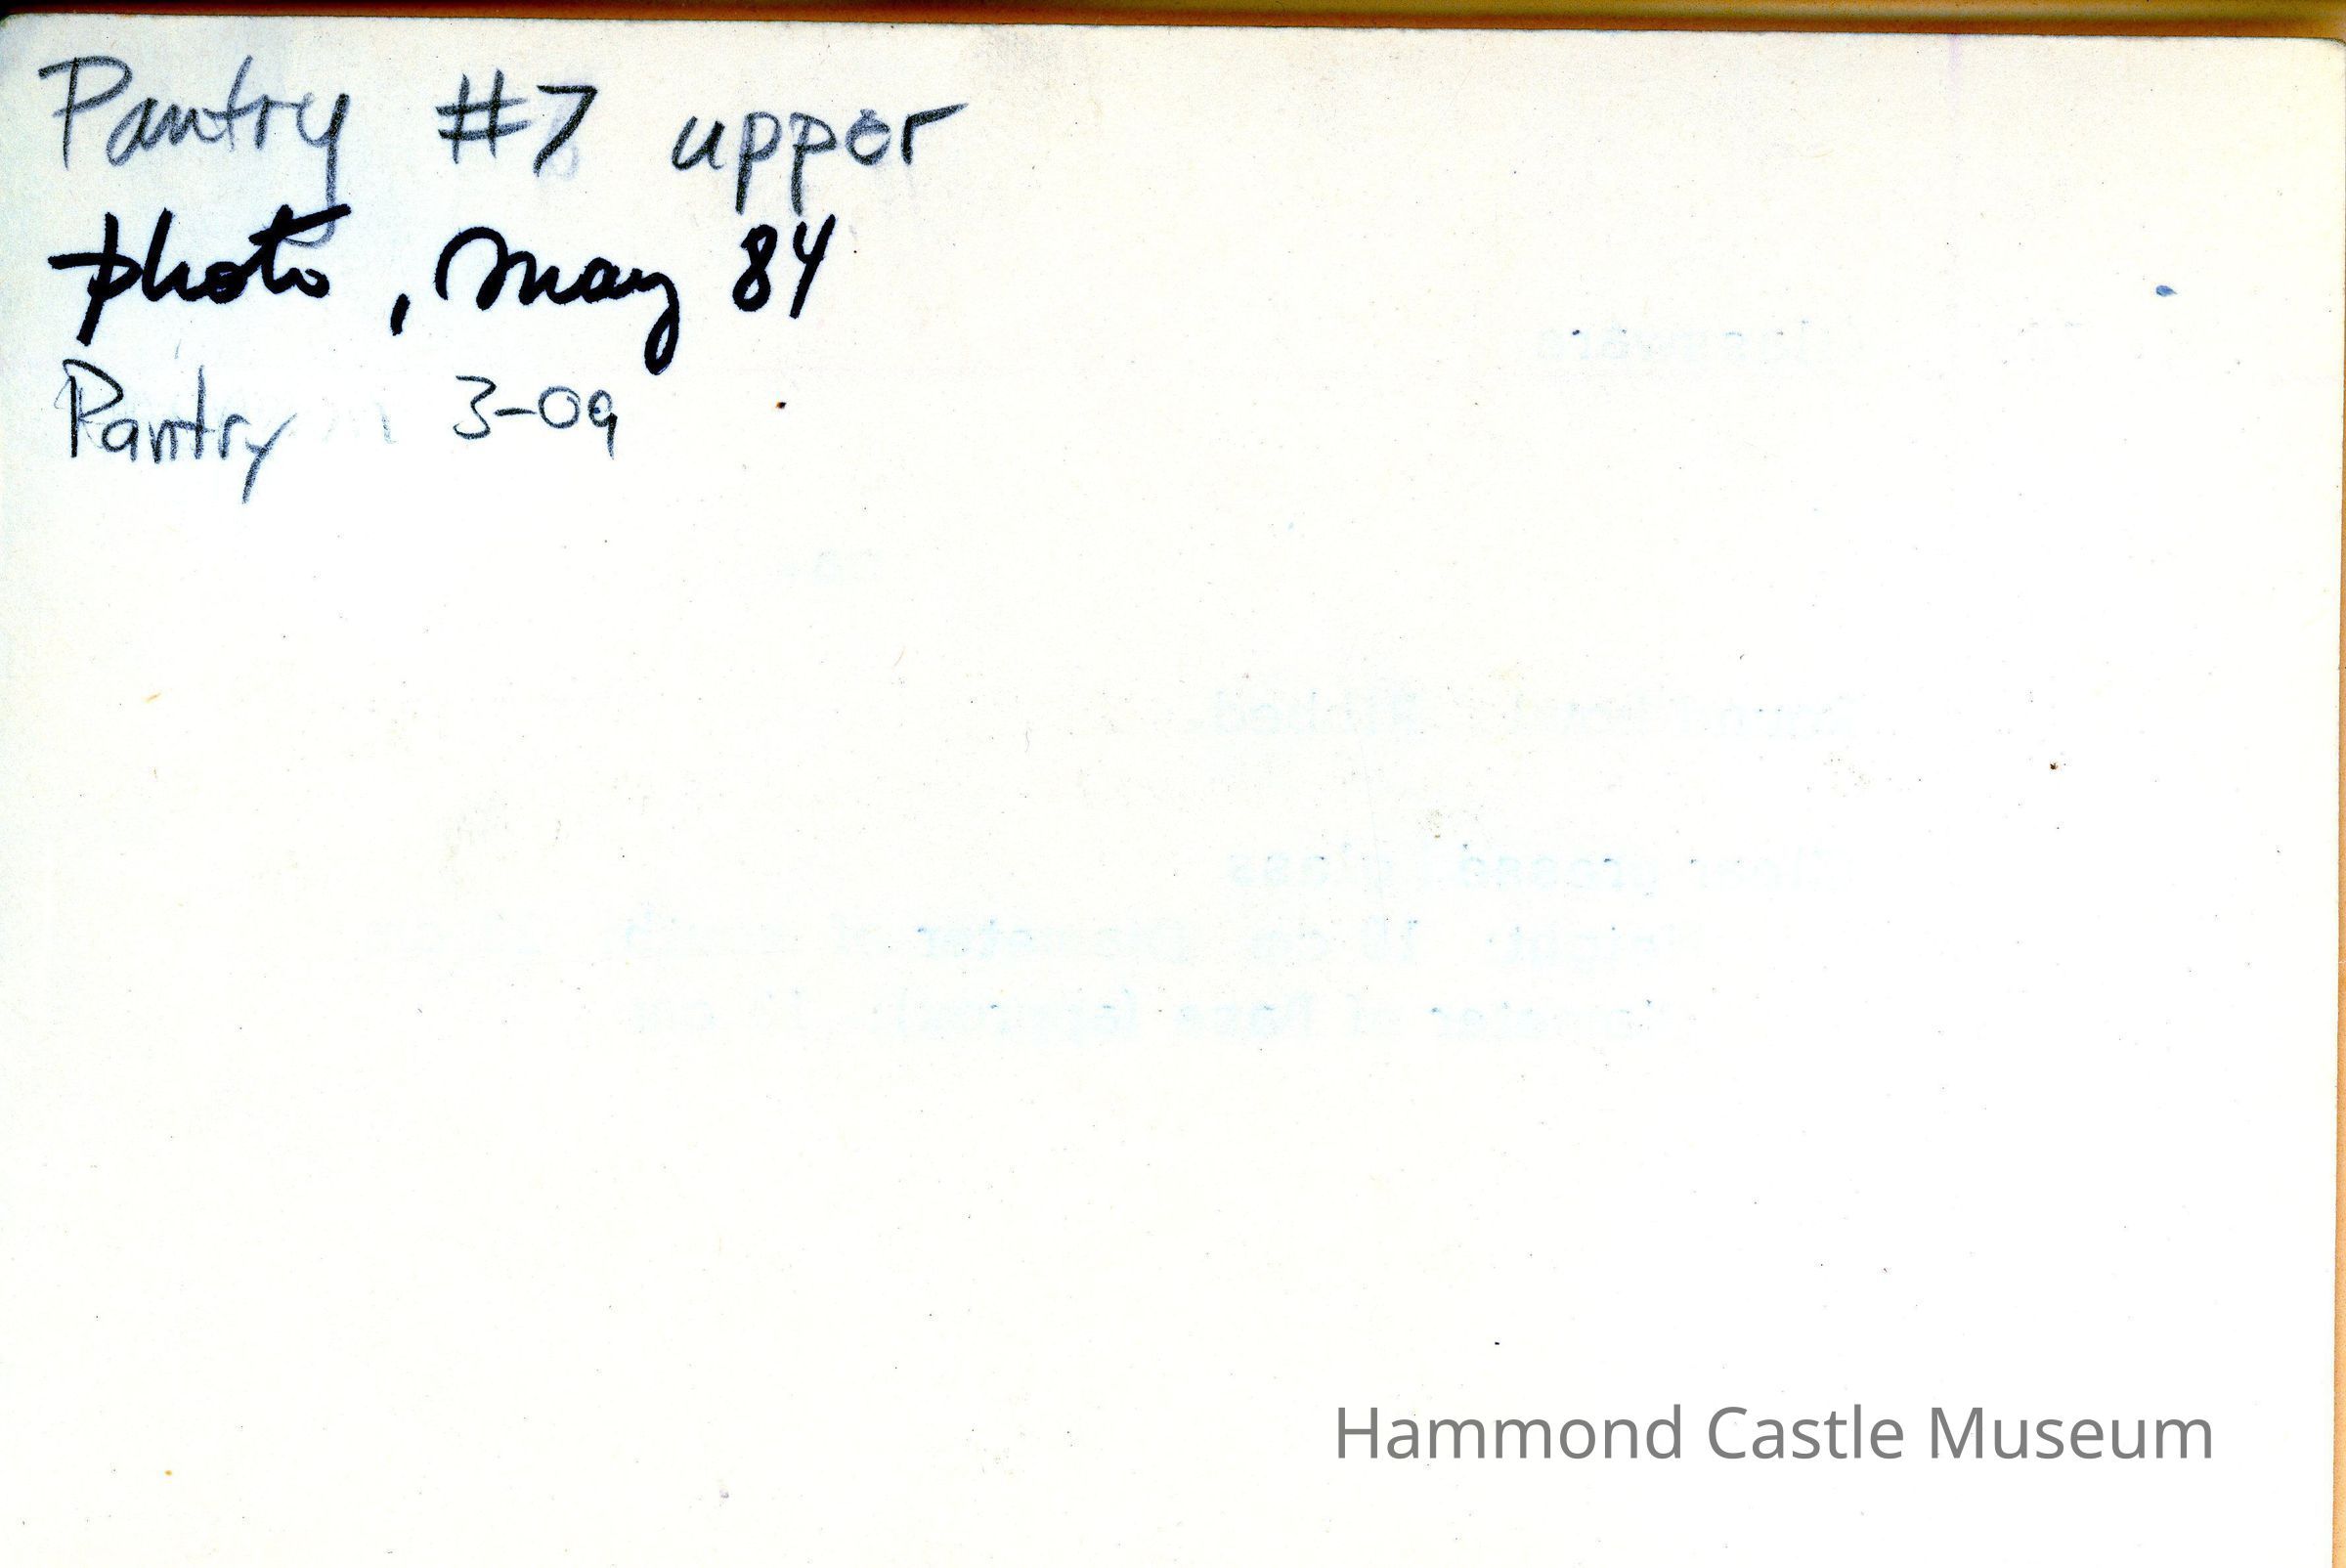 Pantry #7 upper
photo, May 84
Pantry 3-09
Hammond Castle Museum